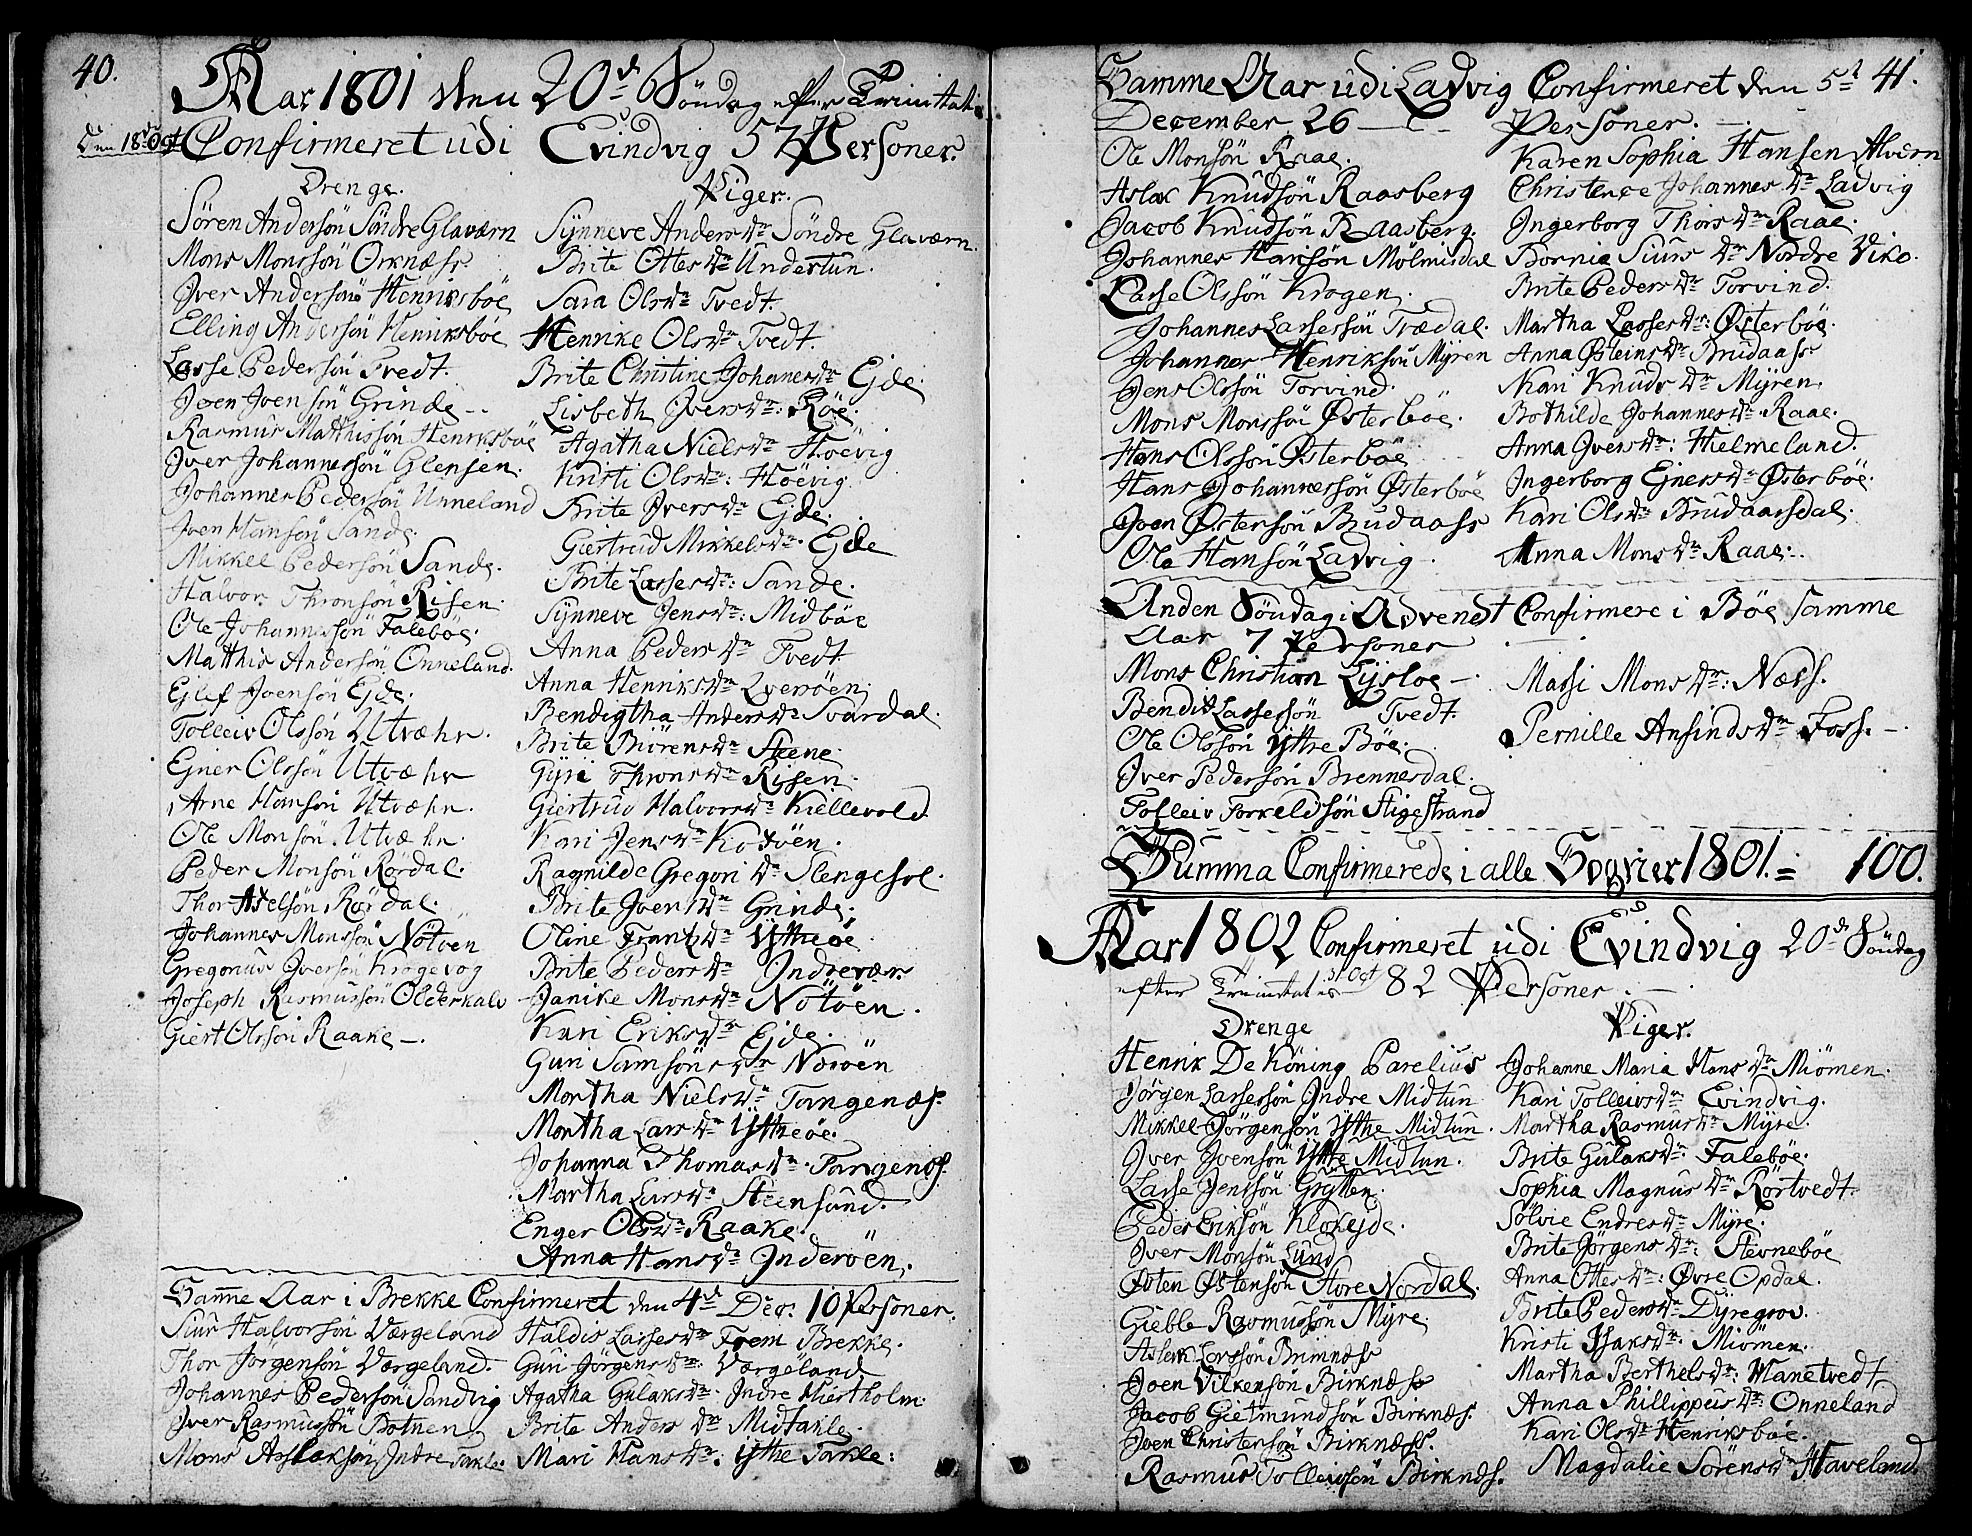 40.
Aar 1801 den 20de Söndag efter Trinitat:
Den 18de Oct Confirmeret udi Evindvig 57 Personer.
Drenge.
Sören Andersön Söndre Glaværn
Mons Monssön Orknæss
Iver Andersön Henriksböe
Elling Andersön Henriksböe
Lasse Pedersön Tvedt.
Joen Joensön Grinde --
Rasmus Matthissön Henriksböe
Iver Johannessön Glensen.
Johannes Pedersön Unneland
Joen Hansön Sande.
Mikkel Pedersön Sande.
Halvor Thronsön Risen
Ole Johannessön Faleböe.
Matthis Andersön Onneland.
Ejlef Joensön Ejde.
Tolleiv Olssön Utvæhr.
Ejner Olssön Utvæhr
Arne Hansön Utvæhr.
Ole Monsön Utvæhr.
Peder Monsön Rördal.
Thor Axelsön Rördal.
Johannes Monssön Nötöen
Gregorius Iversön Krogevog
Joseph Rasmussön Olderkalv
Giert Olssön Raake -.
Piger.
Synneve Andersdr Söndre Glaværn.
Brite Ottesdr Undertun.
Sara Olsdr Tvedt.
Henrike Olsdr Tvedt.
Brite Christine Johanesdr Ejde.
Lisbeth Iversdr: Röe.
Agatha Nielsdr Höevig
Kristi Olsdr: Höevig.
Brite Iversdr Ejde.
Giertrud Mikkelsdr. Ejde
Brite Lassesdr: Sande.
Synneve Jensdr: Midböe
Anna Pedersdr Tvedt.
Anna Henriksdr Qveröen.
Bendigtha Andersdr Svardal.
Brite Biörensdr Steene.
Gyri Thronsdr Risen.
Giertrud Halvorsdr Kiellevold
Kari Jensdr Kotöen.
Ragnilde Gregori dr Slengesol.
Brite Joensdr Grinde.
Oline Frantzdr Yttreöe
Brite Pedersdr Indrevær.
Janike Monsdr Nötöen.
Kari Eriksdr Ejde.
Guri Samsönsdr Noröen
Martha Nielsdr Tangenæs.
Martha Larsdr Yttreöe.
Johanna Thomasdr Tangenæs.
Martha Larsdr Steensund.
Enger Olsdr Raake.
Anna Hansdr Inderöen.
Samme Aar i Brekke Confirmeret den 4de Dec: 10 Personer.
Siur Halvorsön Værgeland
Thor Jörgensön Værgeland.
Johannes Pedersön Sandvig
Iver Rasmussön Botnen
Mons Aslaksön Indre Takle.
Haldis Lassesdr Frem Brekke.
Guri Jörgensdr: Værgeland
Agatha Gulaksdr. Indre Hiertholm.
Brite Anders dr Midtakle.
Mari Hansdr: Yttre Takle:
41.
Samme Aar udi Ladvig Confirmeret den 5te
December 26 Personer.
Ole Monsön Raae.
Aslak Knudsön Raasberg
Jacob Knudsön Raasberg.
Johannes Hansön Mölmisdal
Lasse Olssön Krogen.
Johannes Lassessön Trædal.
Johannes Henriksön Myren
Jens Olssön Torvind.
Mons Monssön Österböe.
Hans Olssön Österböe
Hans Johannessön Österböe
Joen Östensön Brudaass
Ole Hansön Ladvig
Karen Sophia Hansen Alværn
Christence Johannesdr Ladvig
Ingerborg Thorsdr Raae.
Bornia Siurs dr Nordre Viko.
Brite Pedersdr Torvind.
Martha Lassesdr: Österböe.
Anna Östeinsdr Brudaass
Kari Knudsdr Myren.
Bothilde Johannesdr Raae.
Anna Iversdr: Hielmeland.
Ingerborg Ejnersdr Österböe.
Kari Olsdr Brudaasdal.
Anna Monsdr Raae.
Anden Söndag i Advendt Confirmere i Böe samme
Aar 7 Personer
Mons Christian Lijsloe -.
Bendix Lassessön Tvedt.
Ole Olssön Yttre Böe.
Iver Pedersön Brennesdal.
Tolleiv Torkeldsön Stigestrand
Massi Monsdr: Næss.
Pernille Ansindsdr Foss.
Summa Confirmerede i alle Sogner 1801 = 100.
Aar 1802 Confirmeret udi Evindvig 20de Söndag
efter Trinitatis 31 Oct 82 Personer.
Drenge
Henrik De Köning Parelius
Jörgen Lassessön Indre Midtun
Mikkel Jörgensön Yttre Midtun.
Iver Ivensön Yttre Midtun.
Lasse Jenssön Grytten.
Peder Eriksön Klokejde.
Iver Monsön Lund
Östen Östensön Store Nordal.
Gieble Rasmussön Myre
Aslak Larssön Brimnæss
Joen Vilkensön Birknæss
Jacob Gietmundsön Birknæs.
Joen Christensön Birknæss.
Rasmus Tolleivsön Birknæs.
Piger.
Johanne Maria Hans dr Miömen.
Kari Tolleivsdr Evindvig.
Martha Rasmusdr Myre.
Brite Gulaksdr: Faleböe.
Sophia Magnusdr Rörtvedt.
Sölvie Endresdr Myre.
Brite Jörgensdr: Stevneböe
Anna Ottesdr: Övre Opdal.
Brite Pedersdr Dyregrov.
Kristi Isaksdr: Miömen.
Martha Berthelsdr: Manetvedt
Anna Phillippusdr Onneland
Kari Olsdr Henriksböe.
Magdalie Sörensdr Haveland.